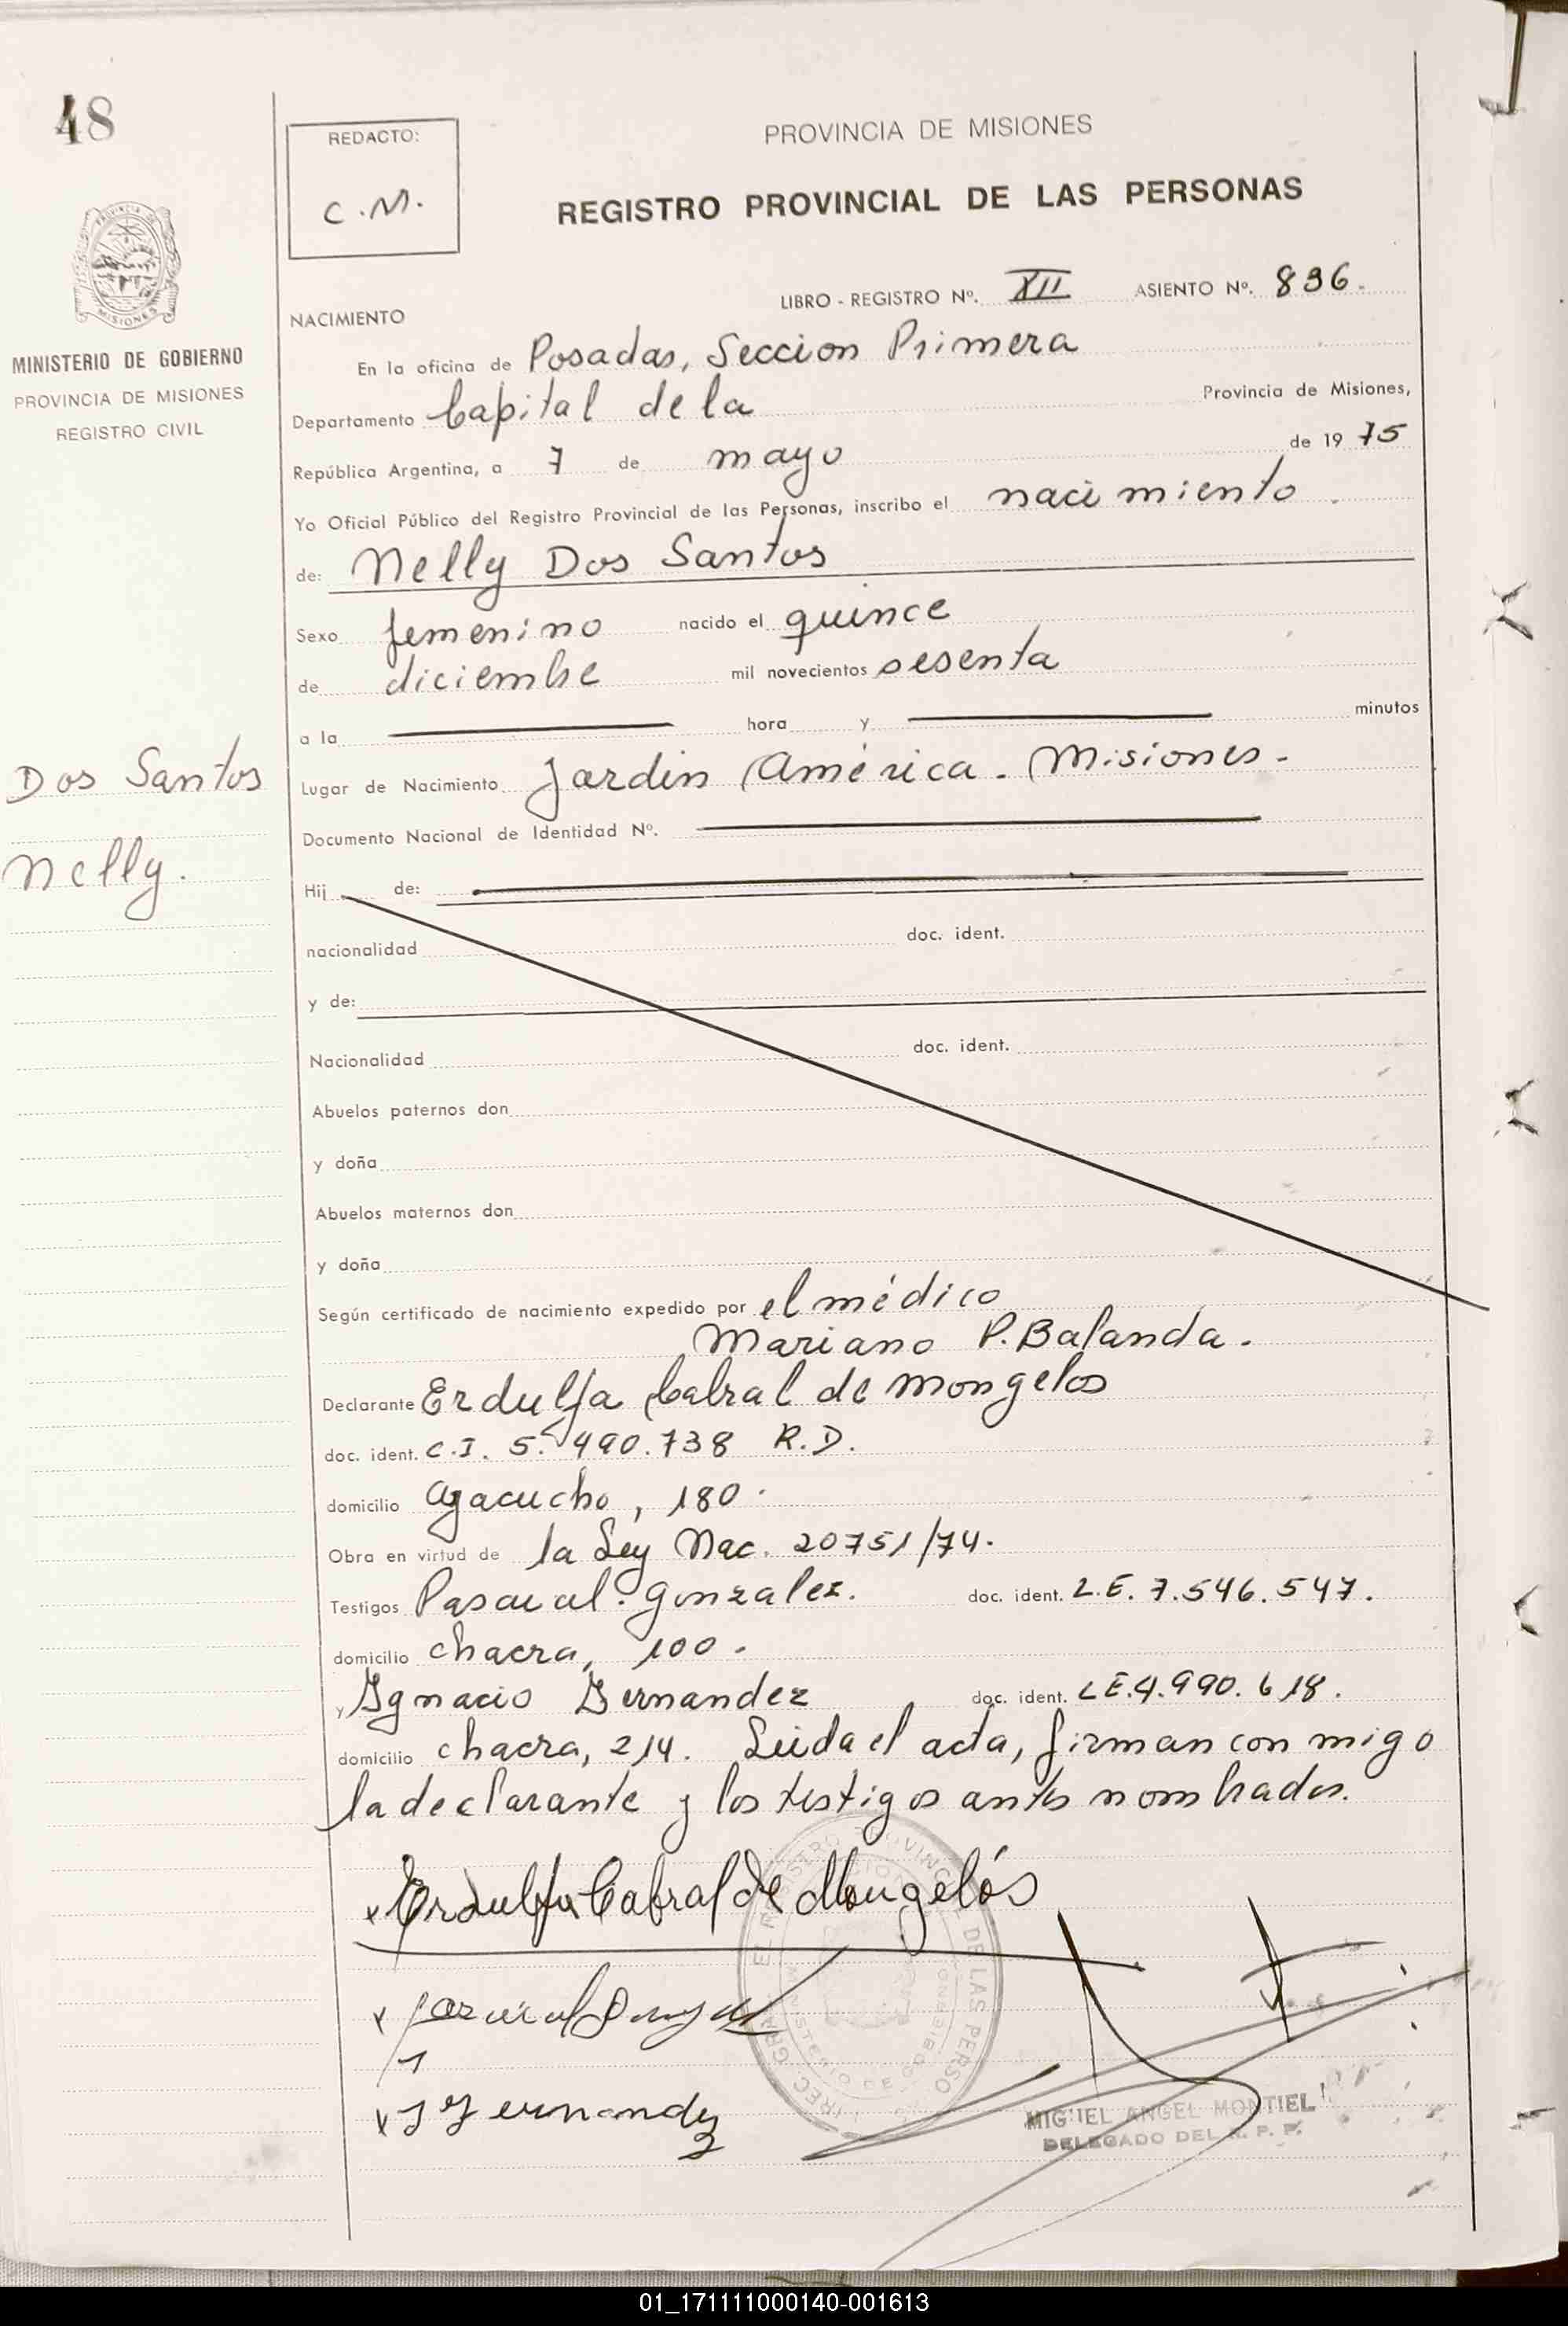 48
REDACTO:
C.M.
PROVINCIA DE MISIONES
REGISTRO PROVINCIAL DE LAS PERSONAS
PROVINCIA DE
MISIONES
MINISTERIO DE GOBIERNO
PROVINCIA DE MISIONES
REGISTRO CIVIL
LIBRO - REGISTRO Nº. XII ASIENTO Nº. 836.
NACIMIENTO
En la oficina de Posadas, Seccion Primera
Departamento Capital de la Provincia de Misiones,
República Argentina, a 7 de mayo de 19 75
Yo Oficial Público del Registro Provincial de las Personas, inscribo el nacimiento.
de: Nelly Dos Santos
Sexo femenino nacido el quince
de diciembre mil novecientos sesenta
a la hora y minutos
Dos Santos
Nelly.
Lugar de Nacimiento Jardin América - Misiones -
Documento Nacional de Identidad Nº.
Hij de:
nacionalidad doc. ident.
y de:
Nacionalidad doc. ident.
Abuelos paternos don
y doña
Abuelos maternos don
y doña
Según certificado de nacimiento expedido por el médico
Mariano P. Balanda.
Declarante Erdulfa Cabral de Mongelos
doc. ident. C.I. 5.490.738 R.D.
domicilio Ayacucho, 180.
Obra en virtud de la Ley Nac. 20751/74.
Testigos Pascual Gonzalez. doc. ident. L.E. 7.546.547.
domicilio chacra, 100.
y Ignacio Fernandez doc. ident. LE.4.990.618.
domicilio chacra, 214. Leida el acta, firman con migo
la declarante y los testigos antes nombrados.
x Erdulfa Cabral de Mongelós
x
x Fernandez
MIGUEL ANGEL MONTIEL
DELEGADO DEL R. P. P.
01_171111000140-001613